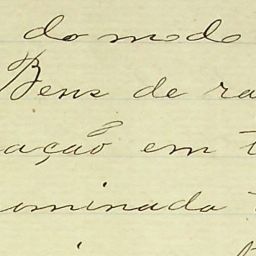 do modo
Bens de ra
ação em t
ominada